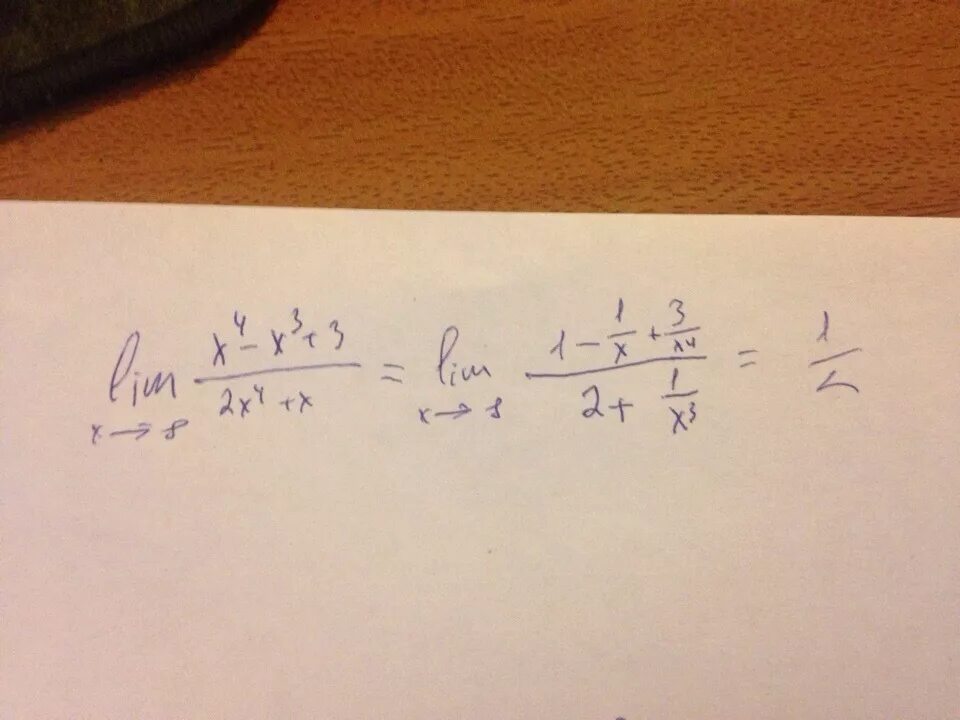 lim x→∞ (x⁴ - x³ + 3)/(2x⁴ + x) = lim x→∞ (1 - 1/x + 3/x⁴)/(2 + 1/x³) = 1/2